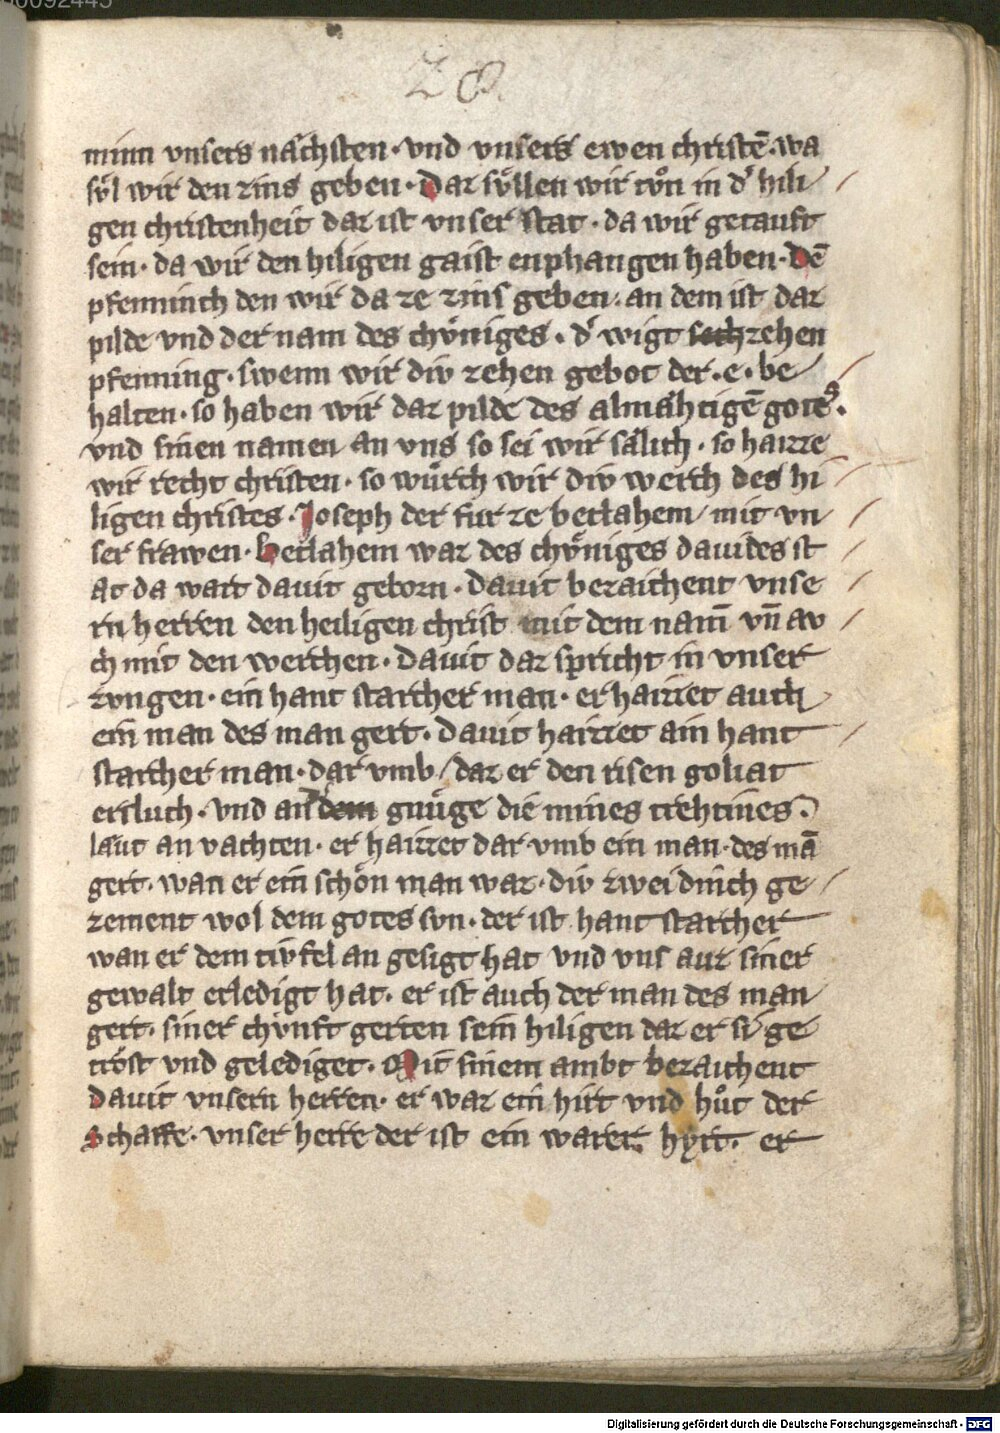 00092445
20.
minn vnsers nächsten · vnd vnsers ewen christē · wa
sv̊l wir den zins geben · Daz sv̊llen wir tv̊n in dˀ hili
gen christenheit daz ist vnser stat · da wir getauft
sein · da wir den hiligen gaist enphangen haben · Dē
pfenninch den wir da ze zins geben · an dem ist daz
pilde vnd der nam des chv̊niges · dˀ wigt sech zehen
pfenning · swenn wir div zehen gebot der · e · be
halten · so haben wir daz pilde des almähtigē gotes .
vnd sinen namen an vns so sei wir sälich · so haizze
wir recht christen · so wůrch wir div werch des hi
ligen christes · Joseph der fur ze betlahem mit vn
ser frawen · Betlahem waz des chv̊niges dauides st
at da wart dauit geborn · dauit bezaichent vnse
rn herren den heiligen christ mit dem nam̄ vn̄ av
ch mit den werchen · Dauit daz spricht in vnser
zvngen · ein hant starcher man · er haizzet auch
ein man des man gert · dauit haizzet ain hant
starcher man · dar vmb / daz er den risen goliat
ersluch · vnd an dem gnůge die mines trehtines
läut an vachten · er haizzet dar vmb ein man · des mā
gert · wan er ein schön man waz · div zwei dinch ge
zement wol dem gotes svn · der ist hant starcher
wan er dem tivfel an gesigt hat vnd vns auz siner
gewalt erledigt hat · er ist auch der man des man
gert · siner chvnft gerten sein hiligen daz er si ge
tröst vnd gelediget · Mit sinem ambt bezaichent
dauit vnsern herren · er waz ein hirt vnd hůt der
schaffe · vnser herre der ist ein warer hyrt · er
Digitalisierung gefördert durch die Deutsche Forschungsgemeinschaft · DFG